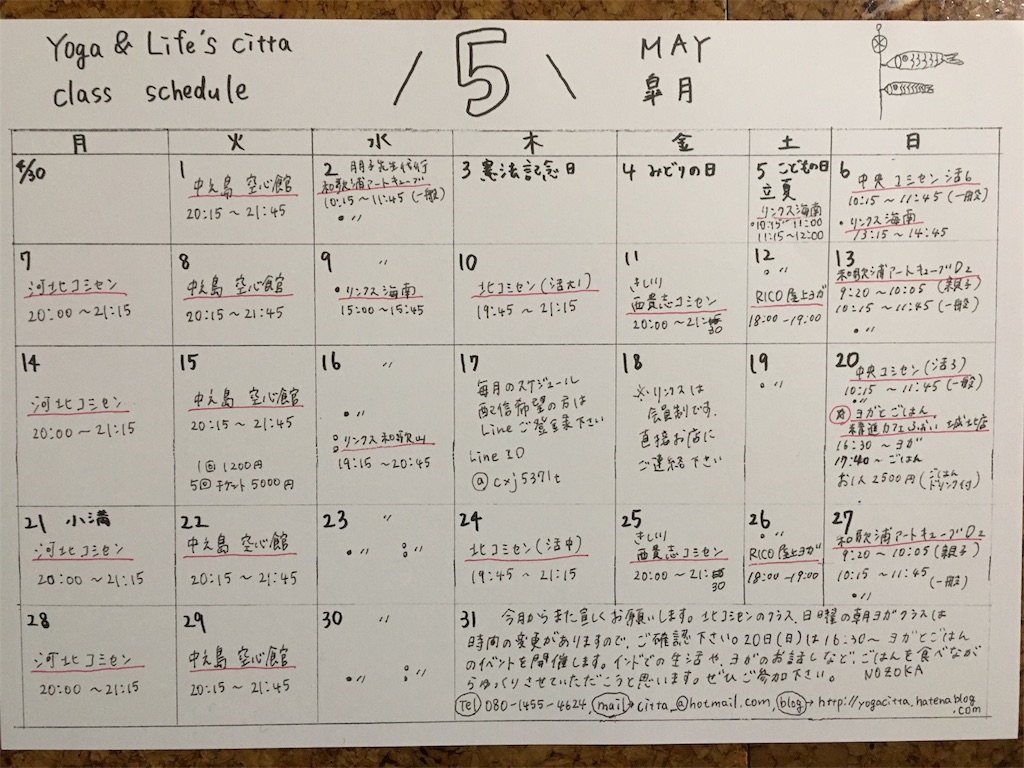 Yoga & Life's citta
class schedule
5
MAY
皐月
月 火 水 木 金 土 日
4/30
1
中之島 空心館
20:15〜21:45
2 朋子先生代行
和歌浦アートキューブ
10:15〜11:45(一般)
• 〃
3 憲法記念日
4 みどりの日
5 こどもの日
立夏
リンクス海南
•10:15〜11:00
11:15〜12:00
6
中央コミセン活6
10:15〜11:45(一般)
• リンクス海南
13:15〜14:45
7
河北コミセン
20:00〜21:15
8
中之島 空心館
20:15〜21:45
9 〃
• リンクス海南
15:00〜15:45
10
北コミセン(活大1)
19:45〜21:15
11
きしい
西貴志コミセン
20:00〜21:30
12
• 〃
RICO屋上ヨガ
18:00-19:00
13
和歌浦アートキューブD2
9:20〜10:05(親子)
10:15〜11:45(一般)
• 〃
14
河北コミセン
20:00〜21:15
15
中之島 空心館
20:15〜21:45
1回 1200円
5回チケット 5000円
16 〃
• 〃
リンクス和歌山
19:15〜20:45
17
毎月のスケジュール
配信希望の方は
Lineご登録下さい
Line ID
@cxj5371t
18
※リンクスは
会員制です。
直接お店に
ご連絡下さい
19
• 〃
20
中央コミセン(活3)
10:15〜11:45(一般)
• 〃
ヨガとごはん
精進カフェふぉい 城北店
16:30〜ヨガ
17:40〜ごはん
お1人2500円(ごはん ドリンク付)
21 小満
河北コミセン
20:00〜21:15
22
中之島 空心館
20:15〜21:45
23 〃
• 〃 〃
24
北コミセン(活中)
19:45〜21:15
25
きしい
西貴志コミセン
20:00〜21:30
26
• 〃
RICO屋上ヨガ
18:00-19:00
27
和歌浦アートキューブD2
9:20〜10:05(親子)
10:15〜11:45
(一般)
• 〃
28
河北コミセン
20:00〜21:15
29
中之島 空心館
20:15〜21:45
30 〃
• 〃 〃
31 今月からまた宜しくお願いします。北コミセンのクラス、日曜の朝ヨガクラスは
時間の変更がありますので、ご確認下さい。20日(日)は16:30〜ヨガとごはん
のイベントを開催します。インドでの生活や、ヨガのお話しなど、ごはんを食べなが
らゆっくりさせていただこうと思います。ぜひご参加下さい。 NOZOKA
Tel 080-1455-4624, mail→citta_@hotmail.com, blog→http://yogacitta.hatenablog
.com